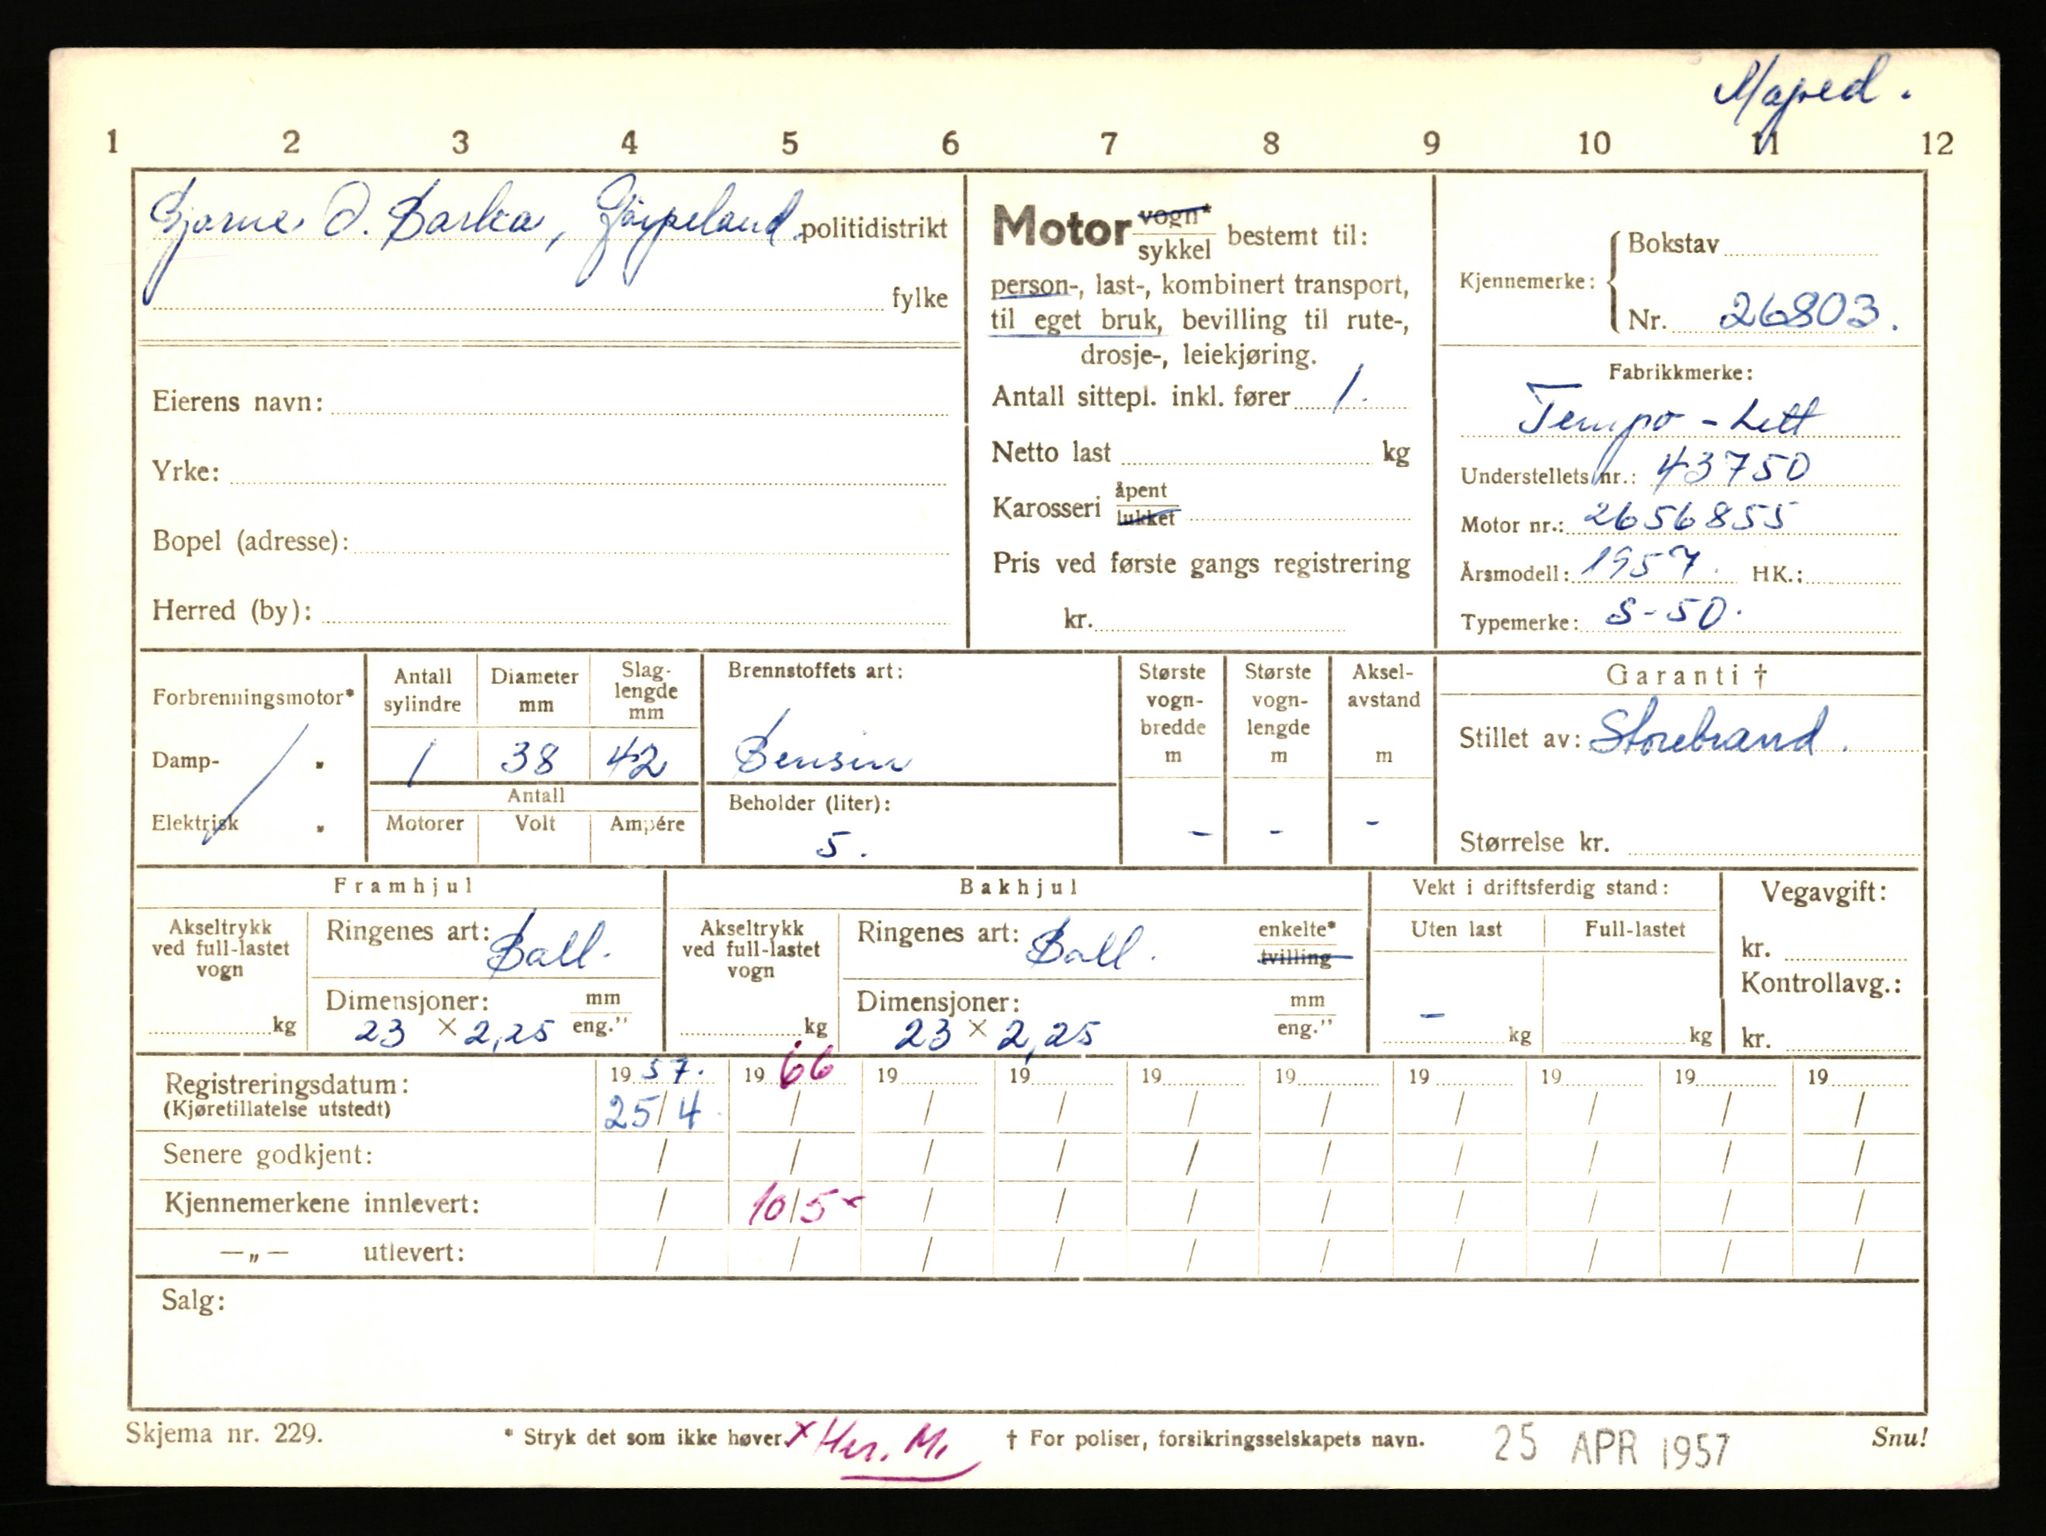 Moped.
1 2 3 4 5 6 7 8 9 10 11 12
Bjarne O. Barka, Jørpeland politidistrikt
fylke
Eierens navn:
Yrke:
Bopel (adresse):
Herred (by):
Motor vogn* / sykkel bestemt til:
person-, last-, kombinert transport,
til eget bruk, bevilling til rute-,
drosje-, leiekjøring.
Antall sittepl. inkl. fører 1.
Netto last kg
Karosseri åpent / lukket
Pris ved første gangs registrering
kr.
Kjennemerke: Bokstav
Nr. 26803.
Fabrikkmerke:
Tempo - Lett
Understellets nr.: 43750
Motor nr.: 2656855
Årsmodell: 1957. HK.:
Typemerke: S-50.
Forbrenningsmotor*
Damp- "
Elektrisk "
Antall sylindre
Diameter mm
Slag-lengde mm
1 38 42
Antall
Motorer Volt Ampére
Brennstoffets art:
Bensin
Beholder (liter):
5.
Største vogn-bredde m
Største vogn-lengde m
Aksel-avstand m
- - -
Garanti †
Stillet av: Storebrand.
Størrelse kr.
Framhjul
Akseltrykk ved full-lastet vogn
kg
Ringenes art: Ball.
Dimensjoner: mm / eng."
23 × 2,25
Bakhjul
Akseltrykk ved full-lastet vogn
kg
Ringenes art: Ball. enkelte* / tvilling
Dimensjoner: mm / eng."
23 × 2,25
Vekt i driftsferdig stand:
Uten last Full-lastet
- kg kg
Vegavgift:
kr.
Kontrollavg.:
kr.
Registreringsdatum: 19 57. 19 66 19 19 19 19 19 19 19 19
(Kjøretillatelse utstedt) 25/4. / / / / / / / / /
Senere godkjent: / / / / / / / / / /
Kjennemerkene innlevert: / 10/5 × / / / / / / / /
—„— utlevert: / / / / / / / / / /
Salg:
Skjema nr. 229. * Stryk det som ikke høver. † For poliser, forsikringsselskapets navn. 25 APR 1957 Snu!